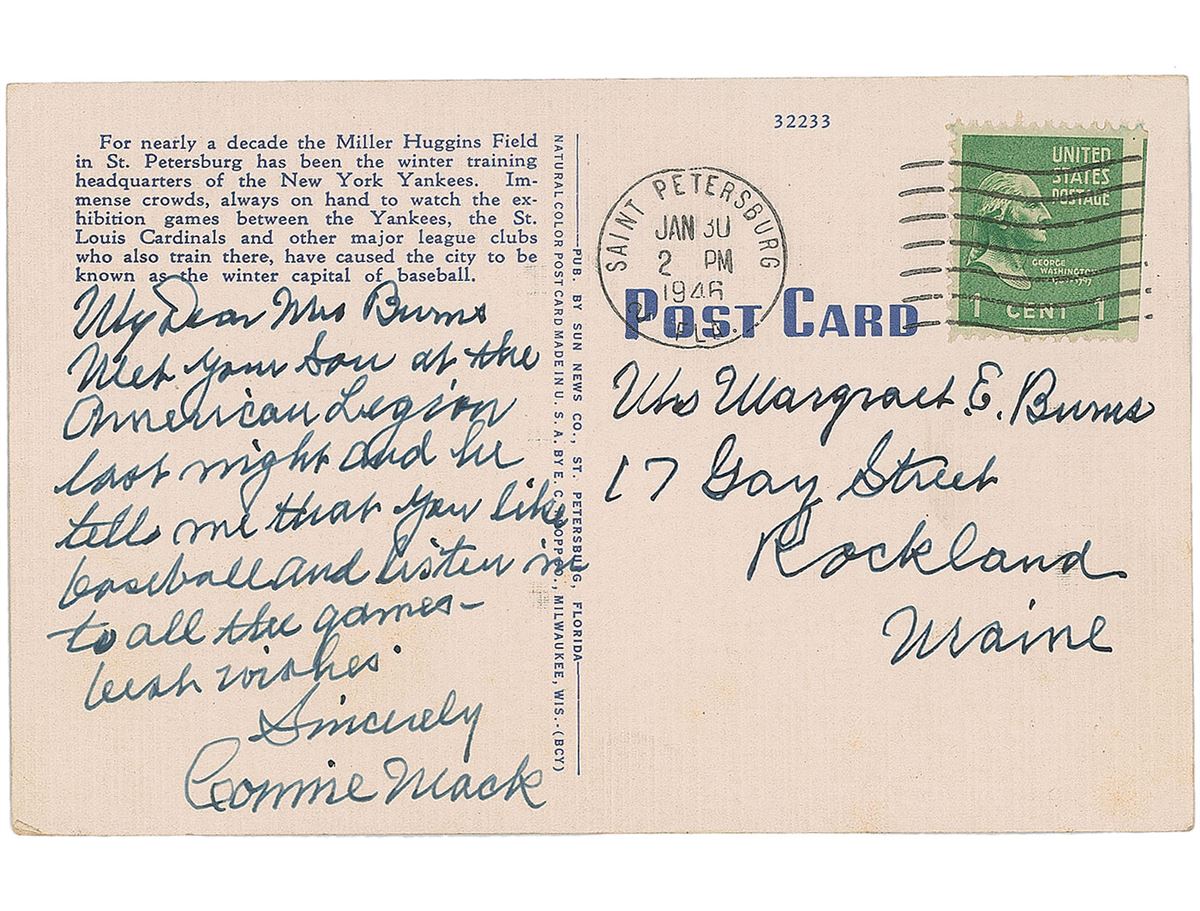 For nearly a decade the Miller Huggins Field
in St. Petersburg has been the winter training
headquarters of the New York Yankees. Im-
mense crowds, always on hand to watch the ex-
hibition games between the Yankees, the St.
Louis Cardinals and other major league clubs
who also train there, have caused the city to be
known as the winter capital of baseball.
My Dear Mrs Burns
Met your Son at the
American Legion
last night and he
tells me that you like
baseball and listen in
to all the games-
best wishes
Sincerely
Connie Mack
NATURAL COLOR POST CARD MADE IN U. S. A. BY E. C. MILWAUKEE, WIS.-(BCY)
PUB. BY SUN NEWS CO., ST. PETERSBURG, FLORIDA
32233
SAINT PETERSBURG
JAN 30
2 PM
1946
FLA.
POST CARD
UNITED
STATES
POSTAGE
GEORGE
WASHINGTON
1 CENT 1
Mrs Margraet E. Burns
17 Gay Street
Rockland
Maine